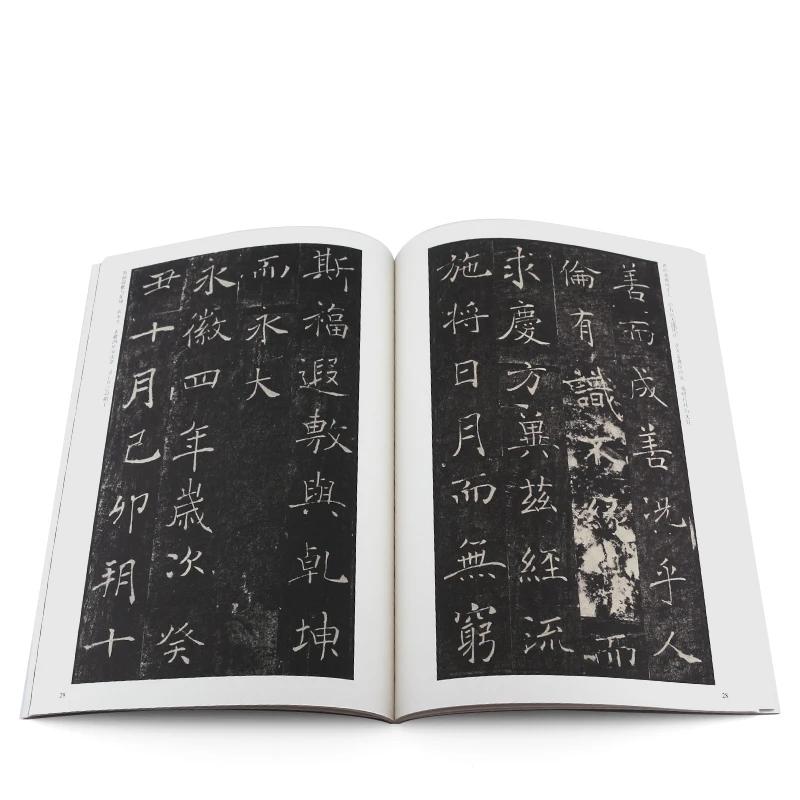 善而成善況乎人
倫有識不緣而
求慶方冀茲經流
施將日月而無窮
28
斯福遐敷與乾坤
而永大
永徽四年歲次癸
丑十月己卯朔十
29